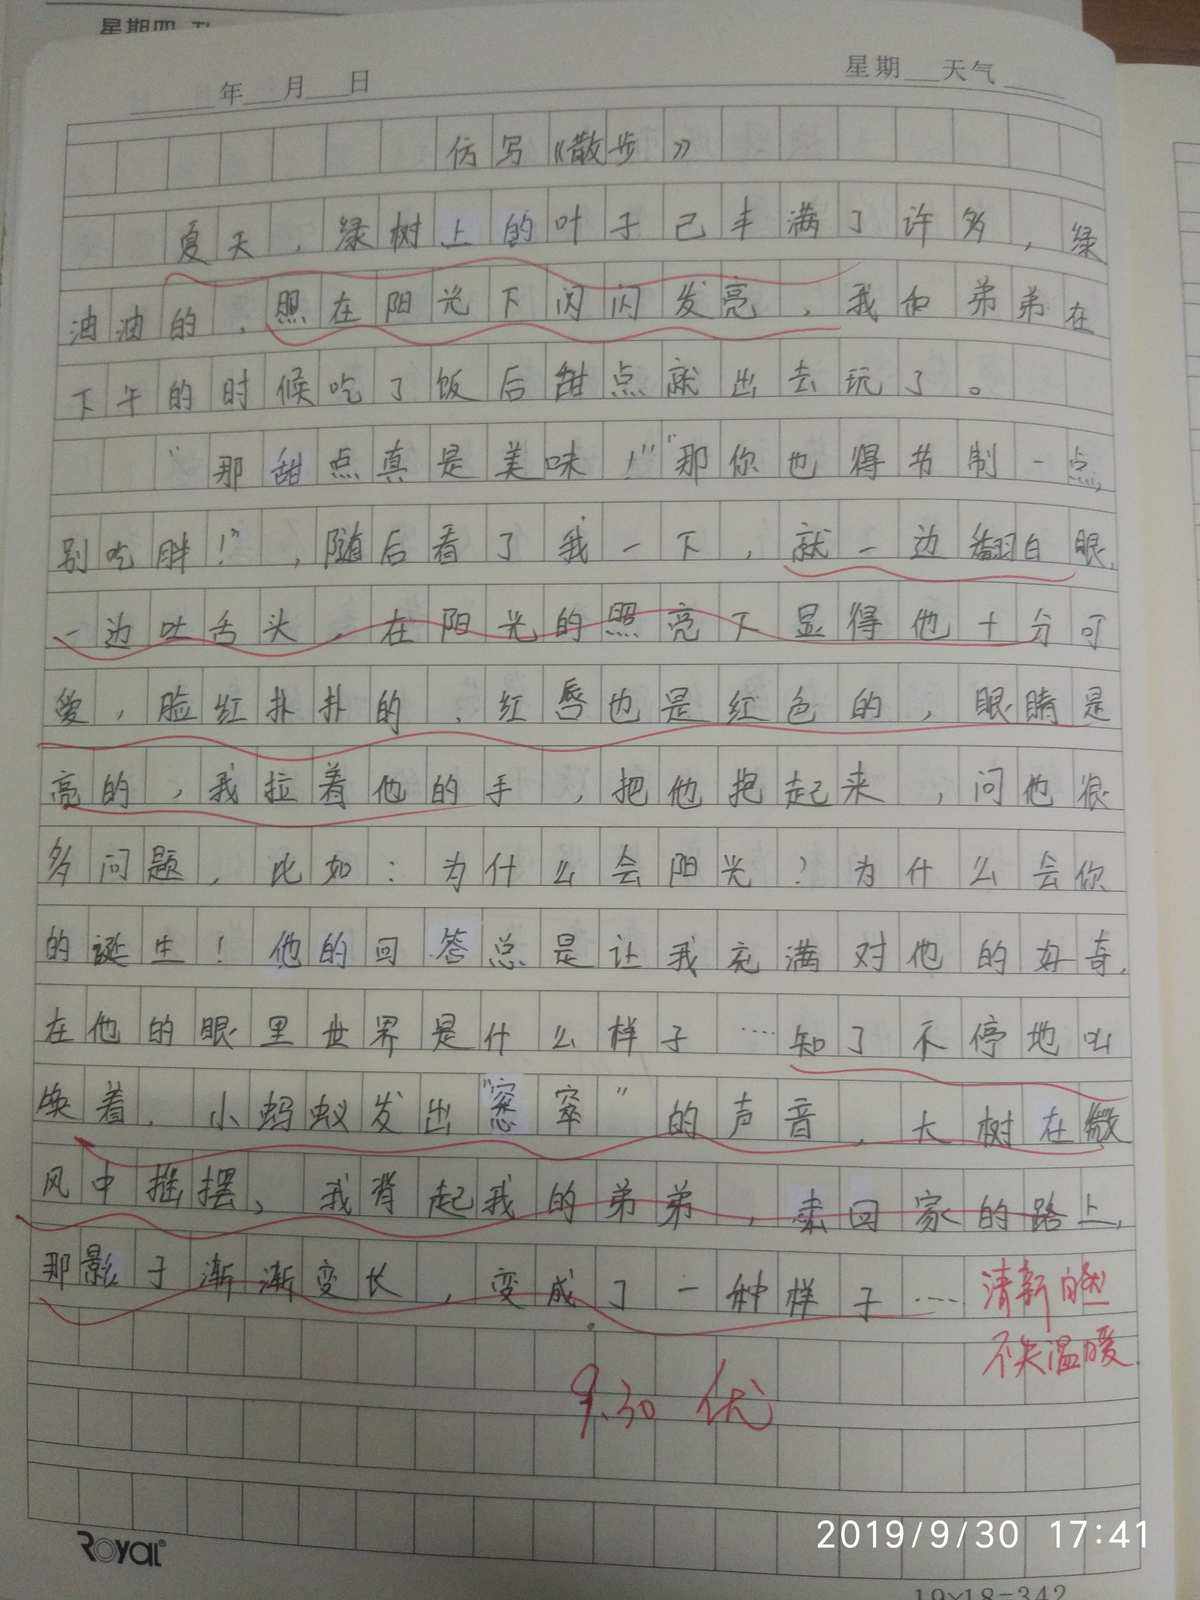 星期四
年 月 日
星期 天气
仿写《散步》
夏天，绿树上的叶子已丰满了许多，绿
油油的，照在阳光下闪闪发亮，我和弟弟在
下午的时候吃了饭后甜点就出去玩了。
“那甜点真是美味！”“那你也得节制一点，
别吃胖！”，随后看了我一下，就一边翻白眼，
一边吐舌头，在阳光的照亮下显得他十分可
爱，脸红扑扑的，红唇也是红色的，眼睛是
亮的，我拉着他的手，把他抱起来，问他很
多问题，比如：为什么会阳光？为什么会你
的诞生！他的回答总是让我充满对他的好奇，
在他的眼里世界是什么样子……知了不停地叫
唤着，小蚂蚁发出“窸窣”的声音，大树在微
风中摇摆，我背起我的弟弟，走回家的路上，
那影子渐渐变长，变成了一种样子……
清新自然
不失温暖
9.30 优
Royal
2019/9/30 17:41
19×18=342